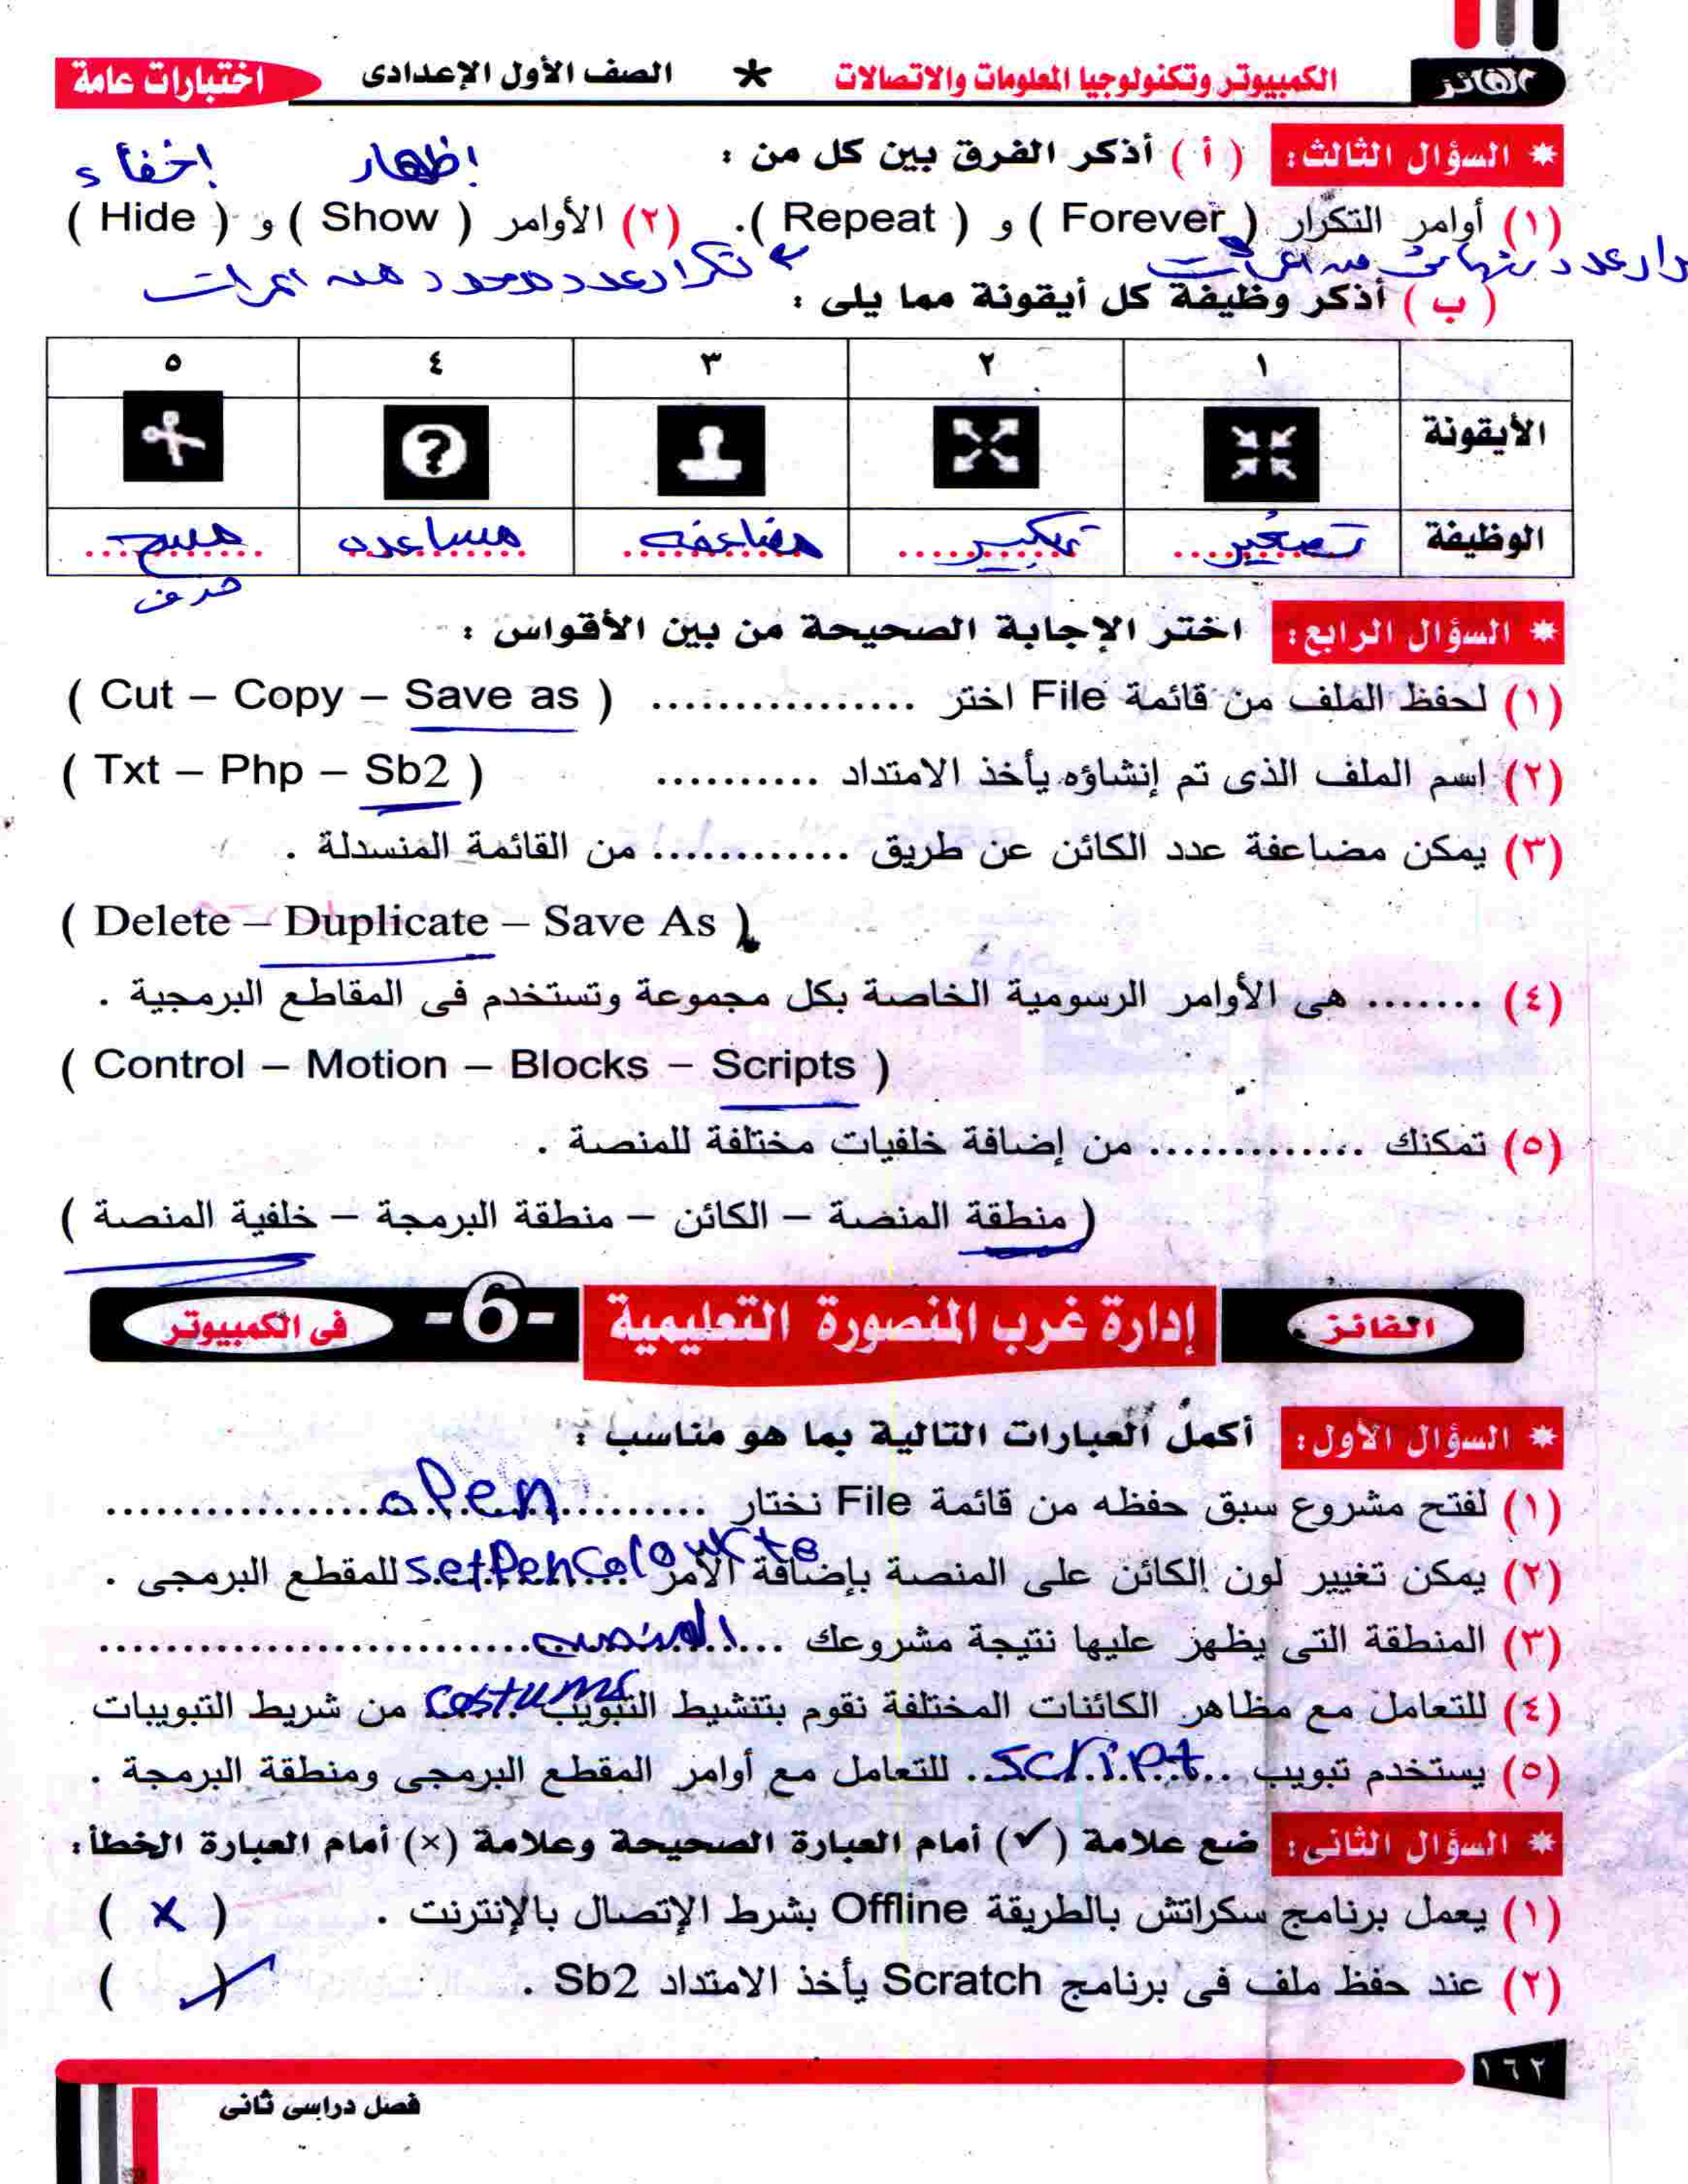 الفائز الكمبيوتر وتكنولوجيا المعلومات والاتصالات * الصف الأول الإعدادى اختبارات عامة
* السؤال الثالث: ( أ ) أذكر الفرق بين كل من :
إظهار إخفاء
(١) أوامر التكرار ( Forever ) و ( Repeat ). (٢) الأوامر ( Show ) و ( Hide )
تكرار عدد محدود من المرات
( ب ) أذكر وظيفة كل أيقونة مما يلى :
١ ٢ ٣ ٤ ٥
الأيقونة
الوظيفة تصغير تكبير مضاعفه مساعده مسح
حذف
* السؤال الرابع: اختر الإجابة الصحيحة من بين الأقواس :
(١) لحفظ الملف من قائمة File اختر ................ ( Cut – Copy – Save as )
(٢) اسم الملف الذى تم إنشاؤه يأخذ الامتداد .......... ( Txt – Php – Sb2 )
(٣) يمكن مضاعفة عدد الكائن عن طريق ............ من القائمة المنسدلة .
( Delete – Duplicate – Save As )
(٤) ....... هى الأوامر الرسومية الخاصة بكل مجموعة وتستخدم فى المقاطع البرمجية .
( Control – Motion – Blocks – Scripts )
(٥) تمكنك ............. من إضافة خلفيات مختلفة للمنصة .
( منطقة المنصة – الكائن – منطقة البرمجة – خلفية المنصة )
الفائز إدارة غرب المنصورة التعليمية -6- فى الكمبيوتر
* السؤال الأول: أكمل العبارات التالية بما هو مناسب :
(١) لفتح مشروع سبق حفظه من قائمة File نختار open
(٢) يمكن تغيير لون الكائن على المنصة بإضافة الأمر set Pen Colour to للمقطع البرمجى .
(٣) المنطقة التى يظهر عليها نتيجة مشروعك المنصه
(٤) للتعامل مع مظاهر الكائنات المختلفة نقوم بتنشيط التبويب costums من شريط التبويبات .
(٥) يستخدم تبويب script للتعامل مع أوامر المقطع البرمجى ومنطقة البرمجة .
* السؤال الثانى: ضع علامة (✓) أمام العبارة الصحيحة وعلامة (×) أمام العبارة الخطأ:
(١) يعمل برنامج سكراتش بالطريقة Offline بشرط الإتصال بالإنترنت . ( × )
(٢) عند حفظ ملف فى برنامج Scratch يأخذ الامتداد Sb2 . ( ✓ )
١٦٢
فصل دراسى ثانى